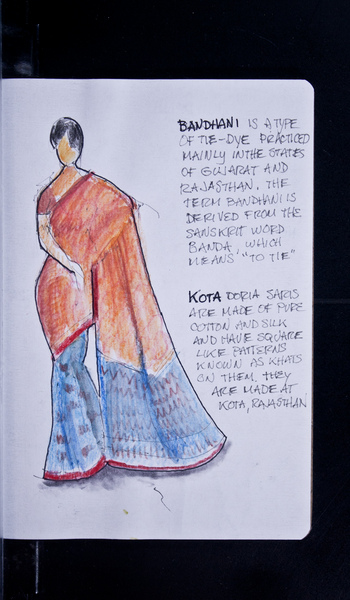 BANDHANI IS A TYPE
OF TIE-DYE PRACTICED
MAINLY IN THE STATES
OF GUJARAT AND
RAJASTHAN. THE
TERM BANDHANI IS
DERIVED FROM THE
SANSKRIT WORD
BANDA, WHICH
MEANS "TO TIE"
KOTA DORIA SARIS
ARE MADE OF PURE
COTTON AND SILK
AND HAVE SQUARE
LIKE PATTERNS
KNOWN AS KHATS
ON THEM. THEY
ARE MADE AT
KOTA, RAJASTHAN